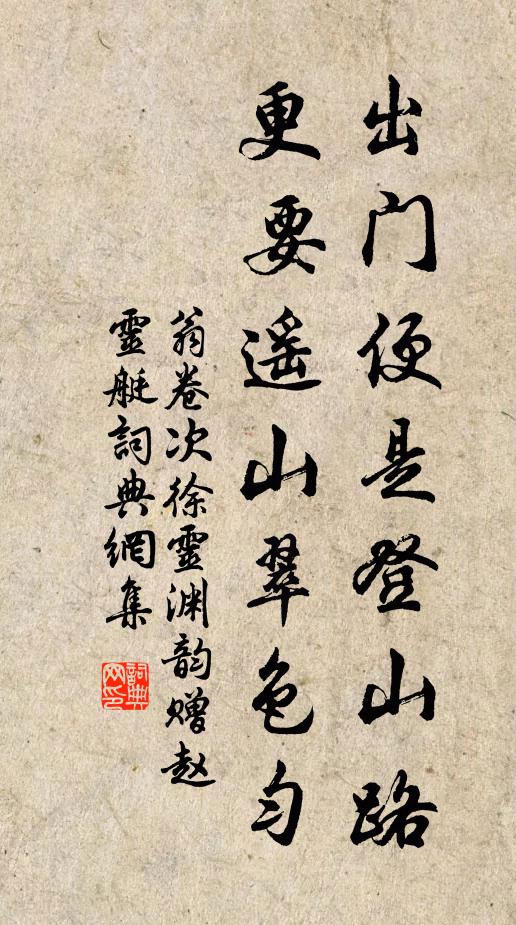 出门便是登山路
更要遥山翠色匀
翁卷次徐靈渊韵赠赵
靈艇詞典網集
詞典网印